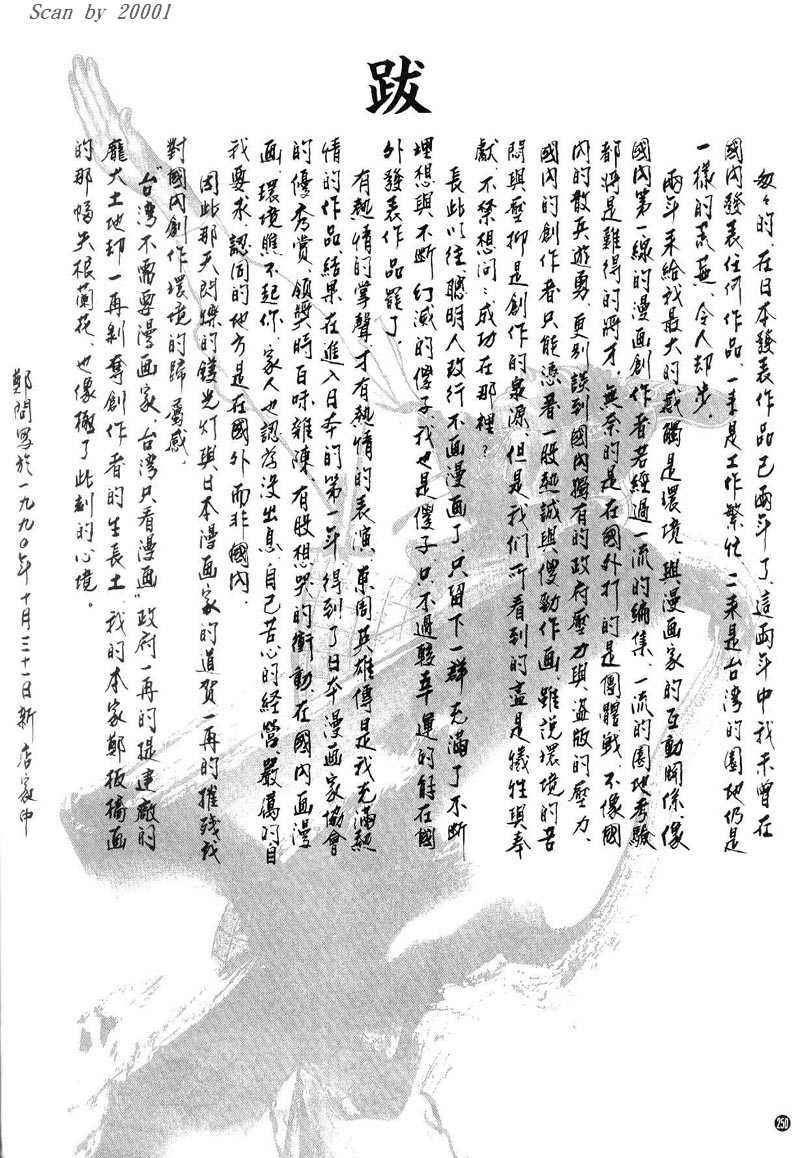 Scan by 20001
跋
匆々的、在日本發表作品已兩年了、這兩年中我未曾在
國內發表任何作品、一来是工作繁忙、二来是台湾的園地仍是
一樣的荒蕪、令人却步.
兩年来給我最大的感觸是環境、與漫画家的互動關係、像
國內第一線的漫画創作者若經過一流的编集、一流的園地考驗
都將是難得的將才、無奈的是在國外打的是團體戰、不像國
內的散兵遊勇、更別談到國內獨有的政府壓力與盗版的壓力、
國內的創作者只能憑著一股熱誠與傻勁作画、雖說環境的苦
悶與壓抑是創作的泉源、但是我們所看到的盡是犧牲與奉
獻、不禁想問：成功在那裡？
長此以往、聰明人改行不画漫画了、只留下一群充滿了不斷
理想與不斷幻滅的傻子、我也是傻子、只不過較幸運的能在國
外發表作品罷了.
有熱情的掌聲才有熱情的表演、東周英雄傳是我充滿熱
情的作品、結果在進入日本的第一年得到了日本漫画家協會
的優秀賞、領獎時百味雜陳、有股想哭的衝動、在國內画漫
画、環境瞧不起你、家人也認為没出息、自己苦心的經營、嚴厲的自
我要求、認同的地方是在國外而非國內.
因此那天閃爍的鎂光灯與日本漫画家的道賀一再的摧残我
對國內創作環境的歸屬感.
“台湾不需要漫画家、台湾只看漫画”政府一再的提建敵的
龐大土地却一再剝奪創作者的生長土、我的本家鄭板橋画
的那幅失根蘭花、也像極了此刻的心境。
鄭問寫於一九九〇年十月三十一日新店家中
250